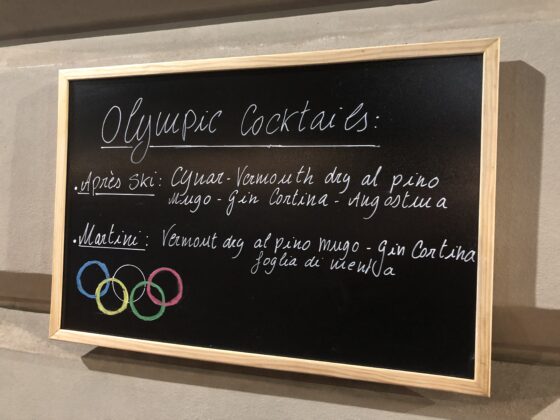 Olympic Cocktails:
• Après Ski: Cynar - Vermouth dry al pino
Mugo - Gin Cortina - Angostura
• Martini: Vermout dry al pino mugo - Gin Cortina
foglia di menta